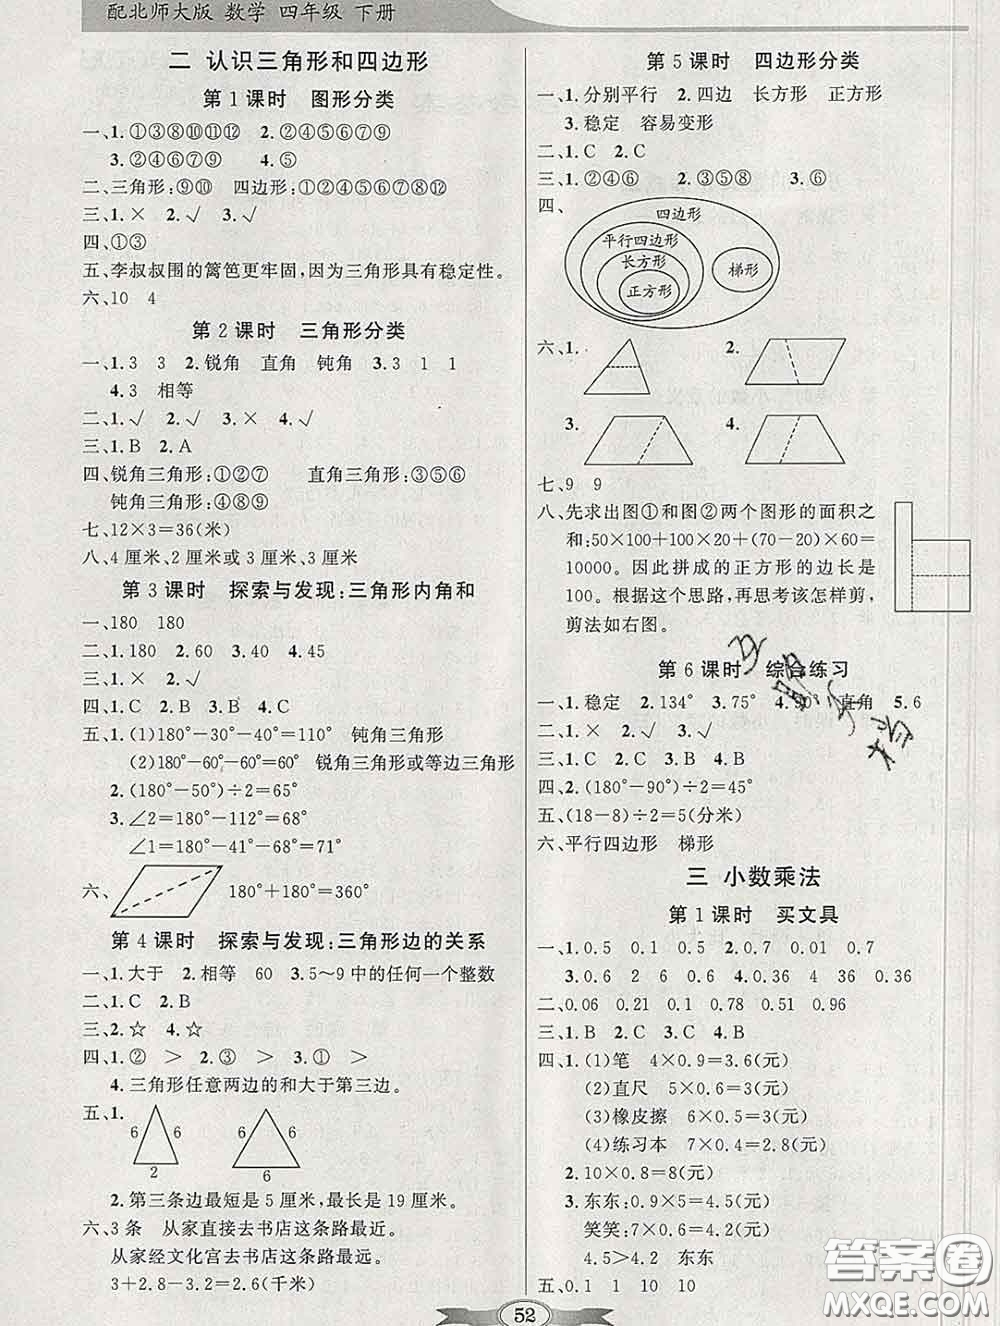 配北师大版 数学 四年级 下册
二 认识三角形和四边形
第1课时 图形分类
一、1.①③⑧⑩⑪⑫ 2.②④⑤⑥⑦⑨
3.②④⑥⑦⑨ 4.⑤
二、三角形:⑨⑩ 四边形:①⑤⑥⑦⑧⑪⑫
三、1.× 2.√ 3.√
四、①③
五、李叔叔围的篱笆更牢固,因为三角形具有稳定性。
六、10 4
第2课时 三角形分类
一、1.3 3 2.锐角 直角 钝角 3.3 1 1
4.3 相等
二、1.√ 2.√ 3.× 4.√
三、1.B 2.A
四、锐角三角形:①②⑦ 直角三角形:③⑤⑥
钝角三角形:④⑧⑨
七、12×3=36(米)
八、4厘米、2厘米或3厘米、3厘米
第3课时 探索与发现:三角形内角和
一、180 180
二、1.180 2.60 3.40 4.45
三、1.× 2.√
四、1.C 2.B 3.B 4.C
五、1.(1)180°-30°-40°=110° 钝角三角形
(2)180°-60°-60°=60° 锐角三角形或等边三角形
2.(180°-50°)÷2=65°
3.∠2=180°-112°=68°
∠1=180°-41°-68°=71°
六、 180°+180°=360°
第4课时 探索与发现:三角形边的关系
一、1.大于 2.相等 60 3.5~9中的任何一个整数
二、1.C 2.B
三、2.☆ 4.☆
四、1.② > 2.③ > 3.① >
4.三角形任意两边的和大于第三边。
五、1.
6 6 6 6
2
2.第三条边最短是5厘米,最长是19厘米。
六、3条 从家直接去书店这条路最近。
从家经文化宫去书店这条路最远。
3+2.8-3.2=2.6(千米)
第5课时 四边形分类
一、1.分别平行 2.四边 长方形 正方形
3.稳定 容易变形
二、1.C 2.C
三、1.①②④⑥ 2.③⑤⑧ 3.⑥
四、
四边形
平行四边形
长方形
正方形
梯形
六、1. 2.
3. 4.
七、9 9
八、先求出图①和图②两个图形的面积之
和:50×100+100×20+(70-20)×60=
10000。因此拼成的正方形的边长是
100。根据这个思路,再思考该怎样剪,
剪法如右图。
第6课时 综合练习
一、1.稳定 2.134° 3.75° 4.90° 直角 5.6
二、1.× 2.√ 3.√
三、1.C 2.C 3.C 4.B
四、2.(180°-90°)÷2=45°
五、(18-8)÷2=5(分米)
六、平行四边形 梯形
三 小数乘法
第1课时 买文具
一、1.0.5 0.1 0.5 2.0.7 0.01 0.7
3.0.06 6 0.06 4.0.36 36 0.36
二、0.06 0.21 0.1 0.78 0.51 0.96
三、1.B 2.C 3.C 4.B
四、1.(1)笔 4×0.9=3.6(元)
(2)直尺 5×0.6=3(元)
(3)橡皮擦 6×0.5=3(元)
(4)练习本 7×0.4=2.8(元)
2.10×0.8=8(元)
3.东东:0.9×5=4.5(元)
笑笑:7×0.6=4.2(元)
4.5>4.2 东东
五、0.1 1 10 10
52
答案圈
MXQE.COM